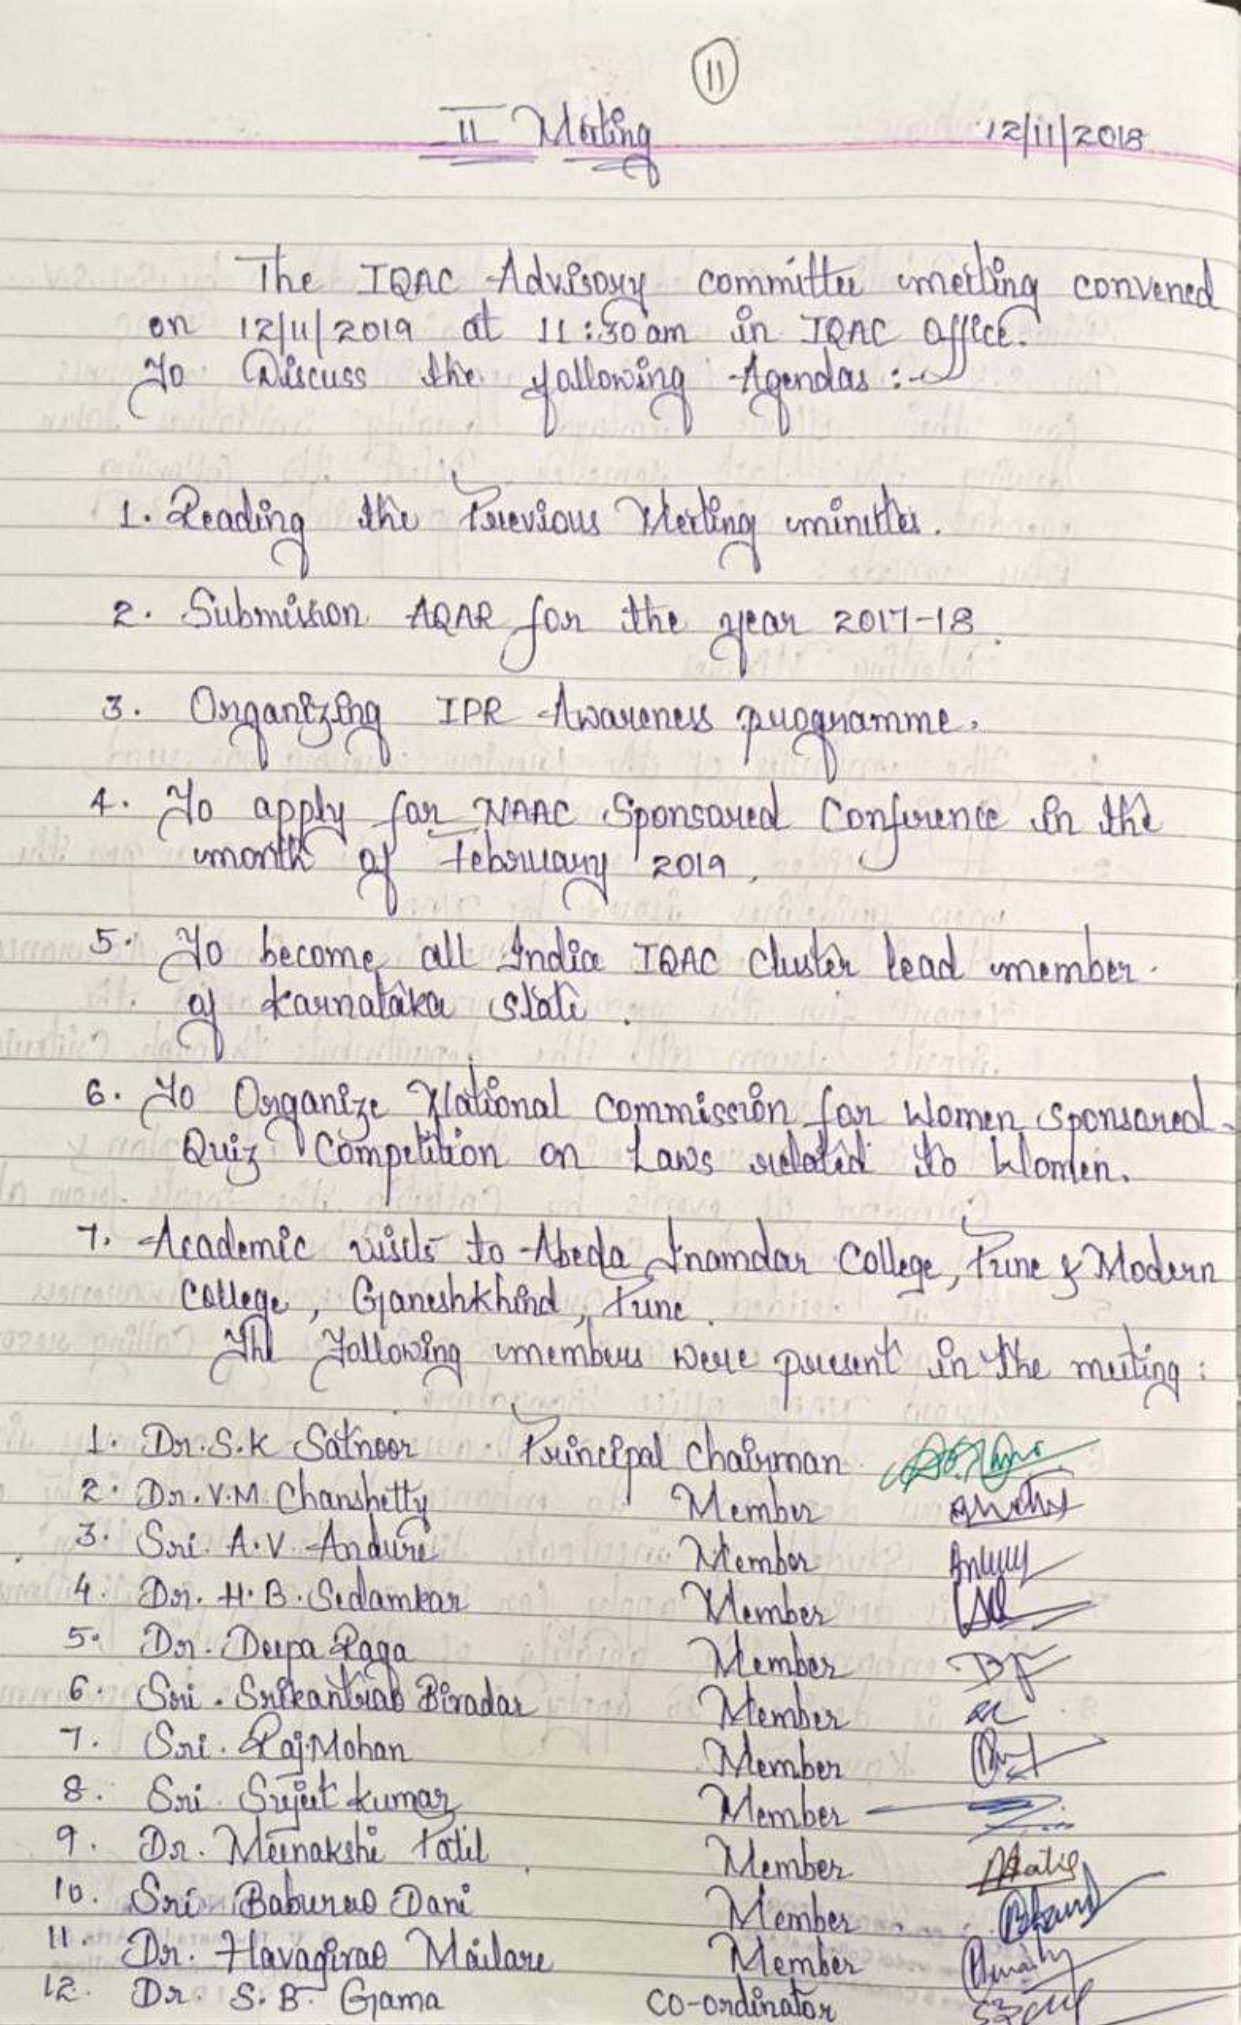 11
II Meeting 12/11/2018
The IQAC Advisory committee meeting convened
on 12/11/2019 at 11:30am in IQAC office.
To Discuss the following Agendas :-
1. Reading the Previous Meeting minutes.
2. Submission AQAR for the year 2017-18.
3. Organizing IPR Awareness programme.
4. To apply for NAAC Sponsored Conference in the
month of February 2019.
5. To become all India IQAC cluster lead member
of Karnataka State.
6. To Organize National Commission for Women sponsored
Quiz Competition on Laws related to Women.
7. Academic visits to Abeda Inamdar College, Pune & Modern
College, Ganeshkhind, Pune.
The following members were present in the meeting:
1. Dr. S.K Satnoor Principal Chairman
2. Dr. V.M. Chanshetty Member
3. Sri. A.V. Andure Member
4. Dr. H.B. Sedamkar Member
5. Dr. Deepa Raga Member
6. Sri. Srikantrao Biradar Member
7. Sri. Raj.Mohan Member
8. Sri. Sujeet kumar Member
9. Dr. Meenakshi Patil Member
10. Sri Baburao Dani Member
11. Dr. Havagirao Mailare Member
12. Dr. S.B. Gama CO-ordinator